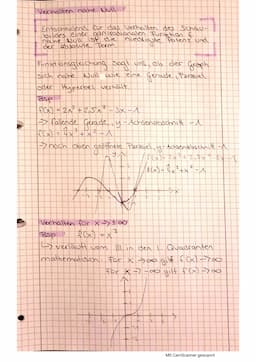 Verhalten nahe Null
Entscheidend für das Verhalten des Schau-
bildes einer ganzrationalen Funktion f
nahe Null ist die niedrigste Potenz und
der absolute Term.
Funktionsgleichung sagt uns, ob der Graph
sich nahe Null wie eine Gerade, Parabel
oder Hyperbel verhält.
Bsp.
-> fallende Gerade, y-Achsenabschnitt -1
-> nach oben geöffnete Parabel, y-Achsenabschnitt -1
Verhalten für x -> ±∞
Bsp. f(x) = x³
↳ verläuft vom III in den I. Quadranten
mathematisch: Für x -> ∞ gilt f(x) -> ∞
für x -> -∞ gilt f(x) ->
MS CamScanner gescannt